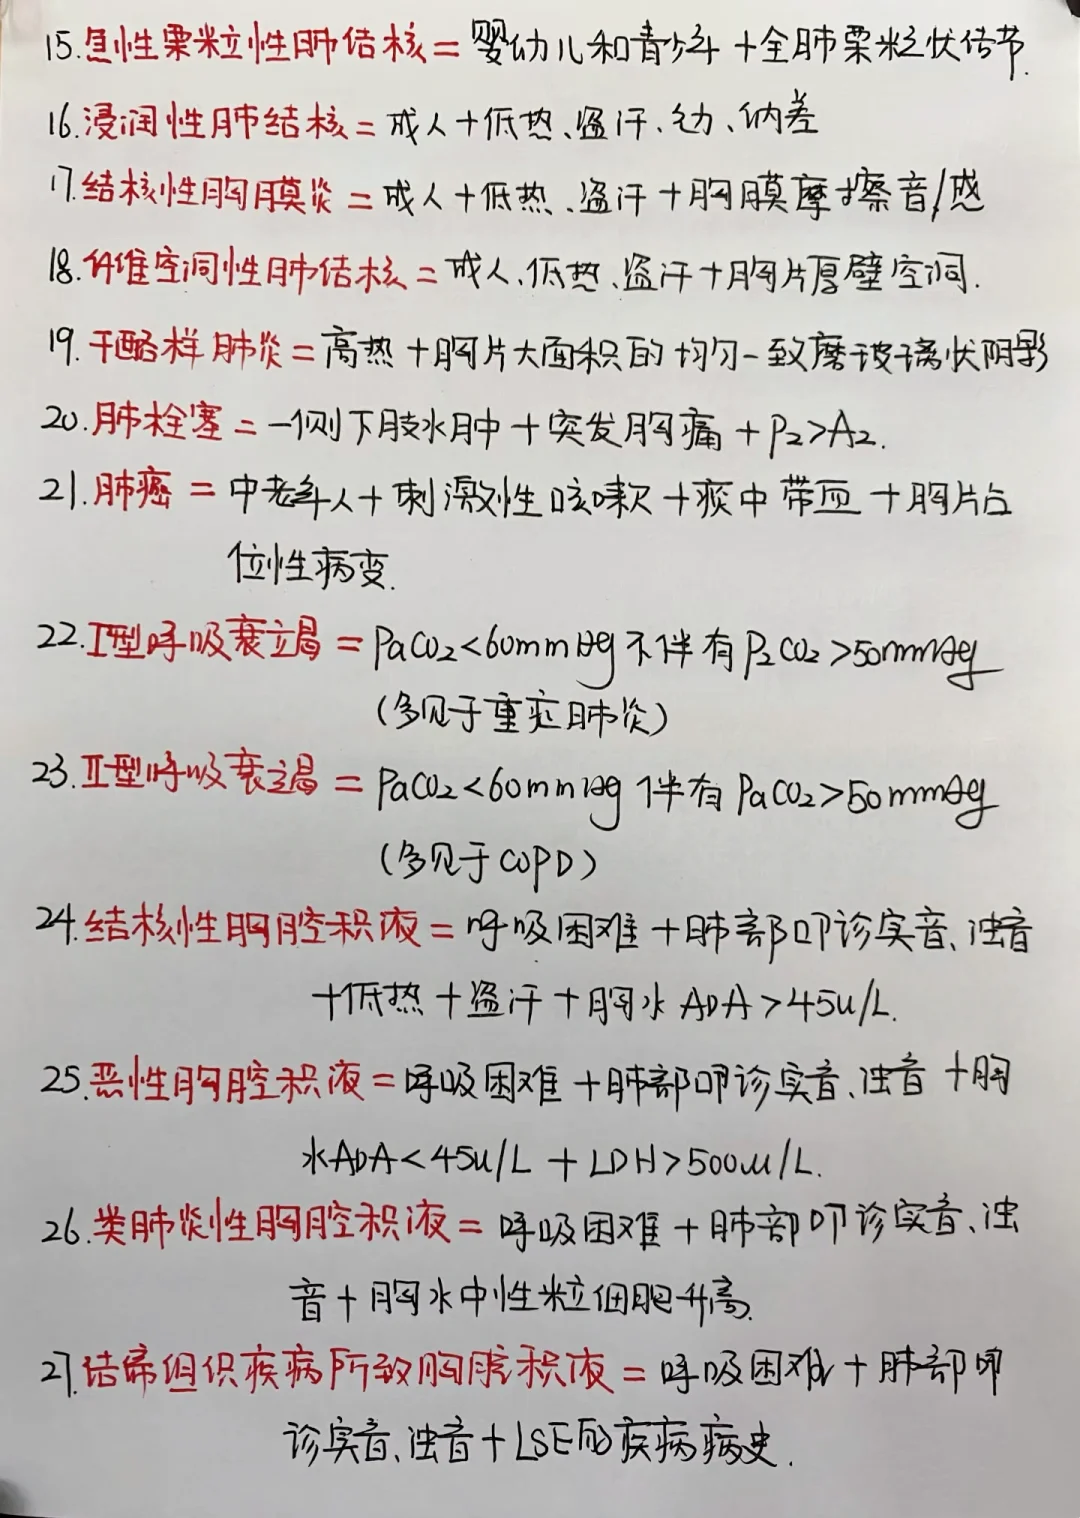 15.急性粟粒性肺结核=婴幼儿和青少年+全肺粟粒状结节.
16.浸润性肺结核=成人+低热、盗汗、乏力、纳差
17.结核性胸膜炎=成人+低热、盗汗+胸膜摩擦音/感
18.纤维空洞性肺结核=成人、低热、盗汗+胸片厚壁空洞.
19.干酪样肺炎=高热+胸片大面积的均匀一致磨玻璃状阴影
20.肺栓塞=一侧下肢水肿+突发胸痛+P₂>A₂.
21.肺癌=中老年人+刺激性咳嗽+痰中带血+胸片占
位性病变.
22.I型呼吸衰竭=PaCO₂<60mmHg不伴有P₂CO₂>50mmHg
(多见于重症肺炎)
23.II型呼吸衰竭=PaCO₂<60mmHg伴有PaCO₂>50mmHg
(多见于COPD)
24.结核性胸腔积液=呼吸困难+肺部叩诊实音、浊音
+低热+盗汗+胸水ADA>45u/L.
25.恶性胸腔积液=呼吸困难+肺部叩诊实音、浊音+胸
水ADA<45u/L+LDH>500u/L.
26.类肺炎性胸腔积液=呼吸困难+肺部叩诊实音、浊
音+胸水中性粒细胞升高.
27.结缔组织疾病所致胸腔积液=呼吸困难+肺部叩
诊实音、浊音+LSE的疾病病史.